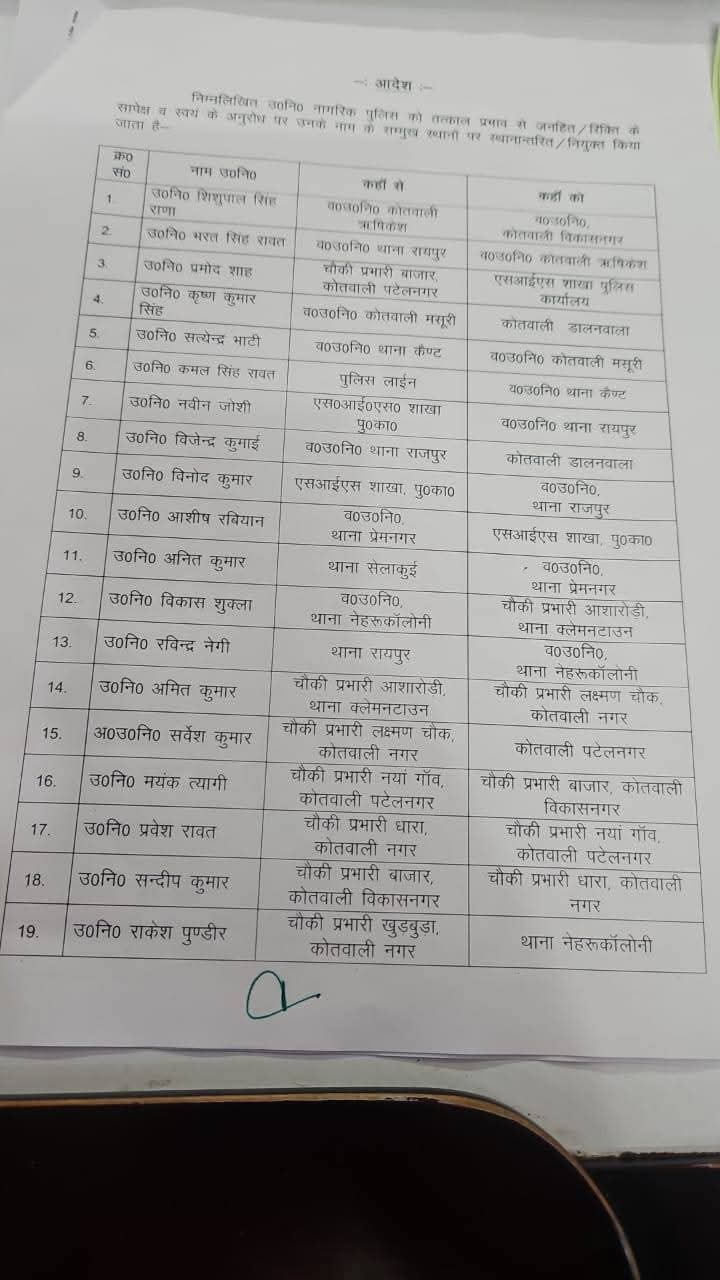 -: आदेश :-
निम्नलिखित उ0नि0 नागरिक पुलिस को तत्काल प्रभाव से जनहित/रिक्ति के
सापेक्ष व स्वयं के अनुरोध पर उनके नाम के सम्मुख स्थानों पर स्थानान्तरित/नियुक्त किया
जाता है-
क्र0 सं0 नाम उ0नि0 कहाँ से कहाँ को
1. उ0नि0 शिशुपाल सिंह राणा व0उ0नि0 कोतवाली ऋषिकेश व0उ0नि0, कोतवाली विकासनगर
2. उ0नि0 भरत सिंह रावत व0उ0नि0 थाना रायपुर व0उ0नि0 कोतवाली ऋषिकेश
3. उ0नि0 प्रमोद शाह चौकी प्रभारी बाजार, कोतवाली पटेलनगर एसआईएस शाखा पुलिस कार्यालय
4. उ0नि0 कृष्ण कुमार सिंह व0उ0नि0 कोतवाली मसूरी कोतवाली डालनवाला
5. उ0नि0 सत्येन्द्र भाटी व0उ0नि0 थाना कैण्ट व0उ0नि0 कोतवाली मसूरी
6. उ0नि0 कमल सिंह रावत पुलिस लाईन व0उ0नि0 थाना कैण्ट
7. उ0नि0 नवीन जोशी एस0आई0एस0 शाखा पु0का0 व0उ0नि0 थाना रायपुर
8. उ0नि0 विजेन्द्र कुमाई व0उ0नि0 थाना राजपुर कोतवाली डालनवाला
9. उ0नि0 विनोद कुमार एसआईएस शाखा, पु0का0 व0उ0नि0, थाना राजपुर
10. उ0नि0 आशीष रबियान व0उ0नि0, थाना प्रेमनगर एसआईएस शाखा, पु0का0
11. उ0नि0 अनित कुमार थाना सेलाकुई व0उ0नि0, थाना प्रेमनगर
12. उ0नि0 विकास शुक्ला व0उ0नि0, थाना नेहरूकॉलोनी चौकी प्रभारी आशारोड़ी, थाना क्लेमनटाउन
13. उ0नि0 रविन्द्र नेगी थाना रायपुर व0उ0नि0, थाना नेहरूकॉलोनी
14. उ0नि0 अमित कुमार चौकी प्रभारी आशारोड़ी, थाना क्लेमनटाउन चौकी प्रभारी लक्ष्मण चौक, कोतवाली नगर
15. अ0उ0नि0 सर्वेश कुमार चौकी प्रभारी लक्ष्मण चौक, कोतवाली नगर कोतवाली पटेलनगर
16. उ0नि0 मयंक त्यागी चौकी प्रभारी नयां गॉव, कोतवाली पटेलनगर चौकी प्रभारी बाजार, कोतवाली विकासनगर
17. उ0नि0 प्रवेश रावत चौकी प्रभारी धारा, कोतवाली नगर चौकी प्रभारी नयां गॉव, कोतवाली पटेलनगर
18. उ0नि0 सन्दीप कुमार चौकी प्रभारी बाजार, कोतवाली विकासनगर चौकी प्रभारी धारा, कोतवाली नगर
19. उ0नि0 राकेश पुण्डीर चौकी प्रभारी खुड़बुडा, कोतवाली नगर थाना नेहरूकॉलोनी